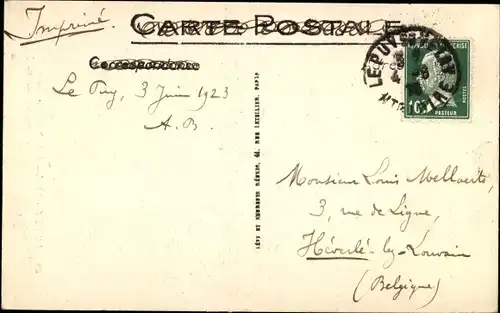 Imprimé
CARTE POSTALE
Correspondance
Le Puy, 3 Juin 1923
A.B.
LÉVY ET NEURDEIN RÉUNIS, 44, RUE LETELLIER, PARIS
LE PUY
LOIRE
FRANÇAISE
POSTES
PASTEUR
Monsieur Louis Mellaerts
3, rue de Ligne,
Héverlé-lez-Louvain
(Belgique)